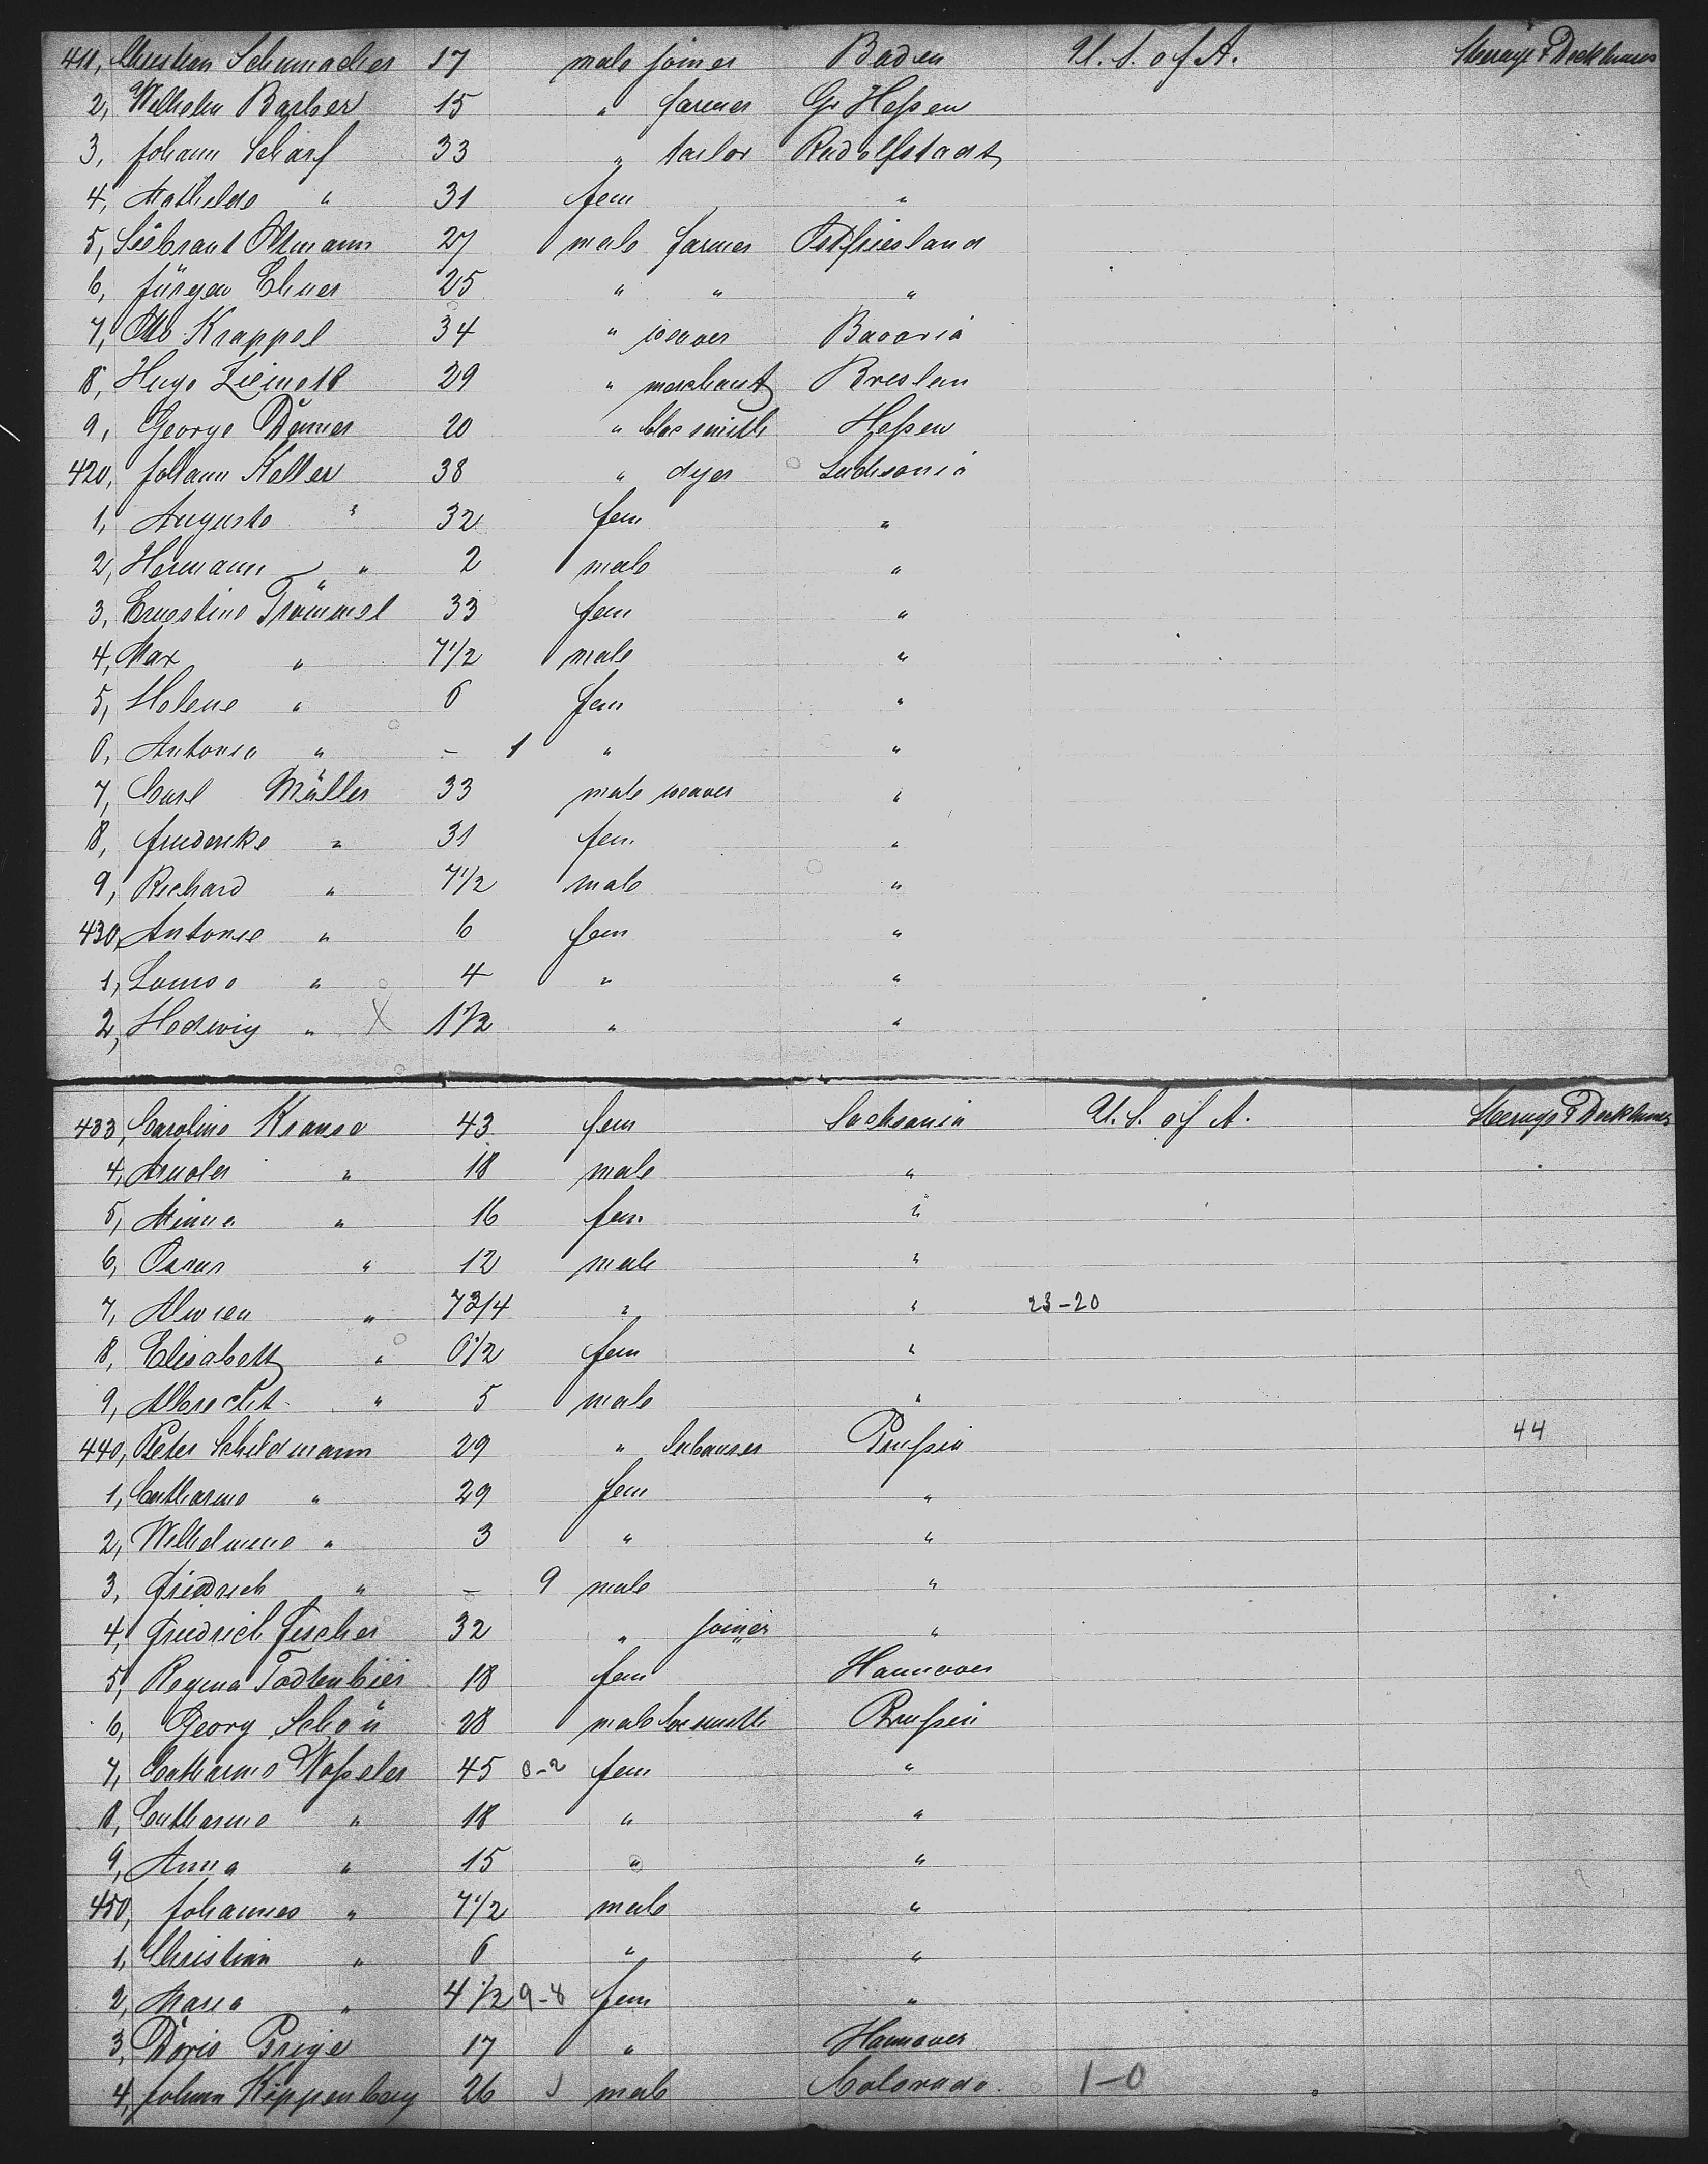 411, Christian Schumacher 17 male joiner Baden U. S. of A. Steerage & Deckhouse
2, Wilhelm Barber 15 " farmer Gr Heßen
3, Johann Scharf 33 " tailor Rudolfstadt
4, Mathilde " 31 fem "
5, Siebrant Oltmann 27 male farmer Ostfriesland
6, Jürgen 25 " " "
7, Otto Krappel 34 " weaver Bavaria
8, Hugo 29 " merchant Breslau
9, George 20 " smith Heßen
420, Johann Keller 38 " dyer
1, Auguste " 32 fem "
2, Hermann " 2 male "
3, Ernestine Trömmel 33 fem "
4, Max " 7 1/2 male "
5, Helene " 6 fem "
6, Antonia " – 1 " "
7, Carl Müller 33 male weaver "
8, Friederike " 31 fem "
9, Richard " 7 1/2 male "
430, Antonie " 6 fem "
1, Louise " 4 " "
2, Hedwig " X 1 1/2 " "
433, Caroline Krause 43 fem Sachsonia U. S. of A. Steerage & Deckhouse
4, " 18 male "
5, Minna " 16 fem "
6, Oscar " 12 male "
7, " 7 3/4 " " 23-20
8, Elisabeth " 6 1/2 fem "
9, Albrecht " 5 male "
440, Peter Schildmann 29 " labourer Prußia 44
1, Catharine " 29 fem "
2, Wilhelmine " 3 " "
3, Friedrich " – 9 male "
4, Friedrich Fischer 32 " joiner "
5, Regina Todtenbier 18 fem Hannover
6, Georg Schön 28 male smith Prußia
7, Catharine 45 0-2 fem "
8, Catharine " 18 " "
9, Anna " 15 " "
450, Johannes " 7 1/2 male "
1, Christian " 6 " "
2, Maria " 4 1/2 9-8 fem "
3, Doris Prige 17 " Hannover
4, Johann Kippenberg 26 male Colorado. 1-0 "